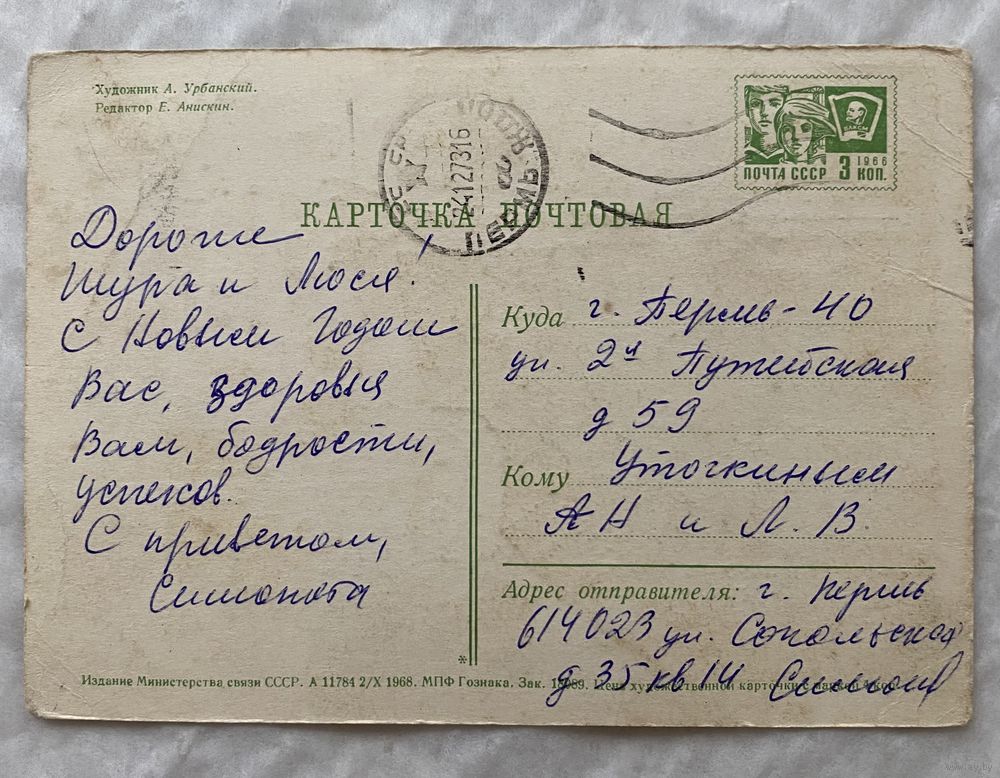 Художник А. Урбанский.
Редактор Е. Анискин.
ПЕРМЬ
24127316
1966
ВЛКСМ
ПОЧТА СССР 3 КОП.
КАРТОЧКА ПОЧТОВАЯ
Дорогие
Шура и Люся!
С Новым Годом
Вас, здоровья
Вам, бодрости,
успехов.
С приветом,
Куда г. Пермь-40
ул. 2я Путейская
д 59
Кому Уточкиным
АН и Л. В.
Адрес отправителя: г. Пермь
614023 ул. Сокольская
д 35 кв 14
Издание Министерства связи СССР. А 11784 2/X 1968. МПФ Гознака. Зак. Цена художественной карточки с маркой 4 коп.
www.ay.by